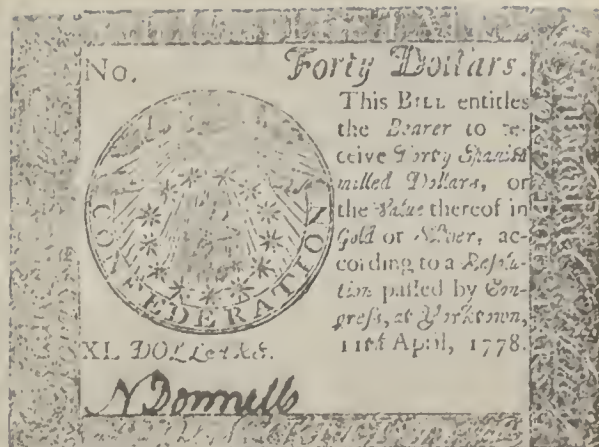 No. Forty Dollars.
This BILL entitles
the Bearer to re-
ceive Forty Spanish
milled Dollars, or
the Value thereof in
Gold or Silver, ac-
cording to a Resolu-
tion passed by Con-
gress, at Yorktown,
11th April, 1778.
CONFEDERATION
XL DOLLARS.
N Donnell